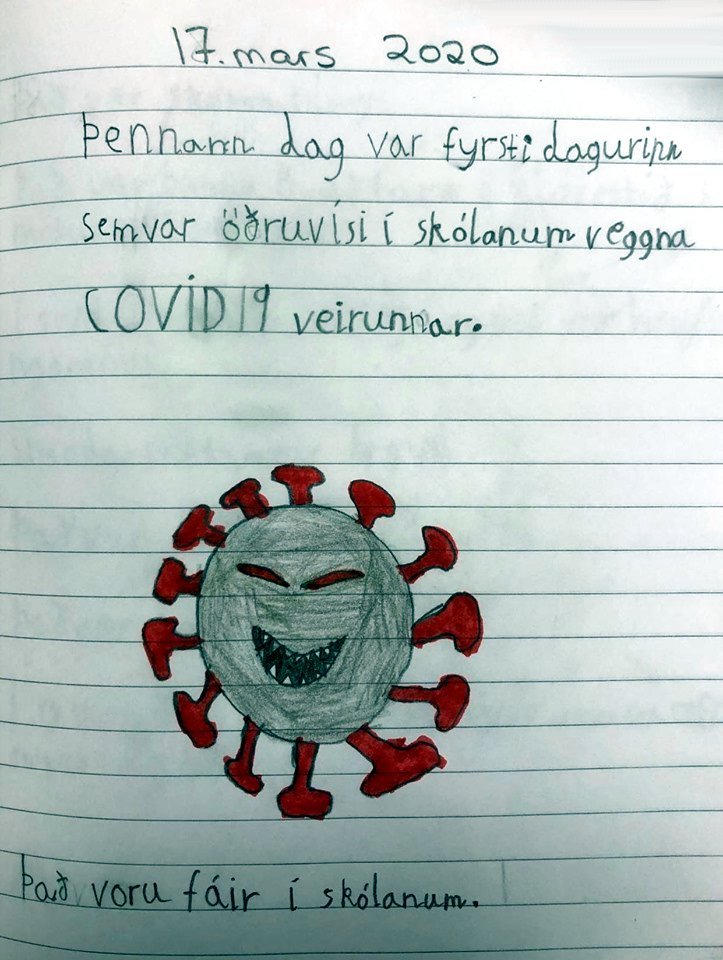 17. mars 2020
Þennann dag var fyrsti dagurinn
sem var öðruvísi í skólanum veggna
COVID19 veirunnar.
Það voru fáir í skólanum.